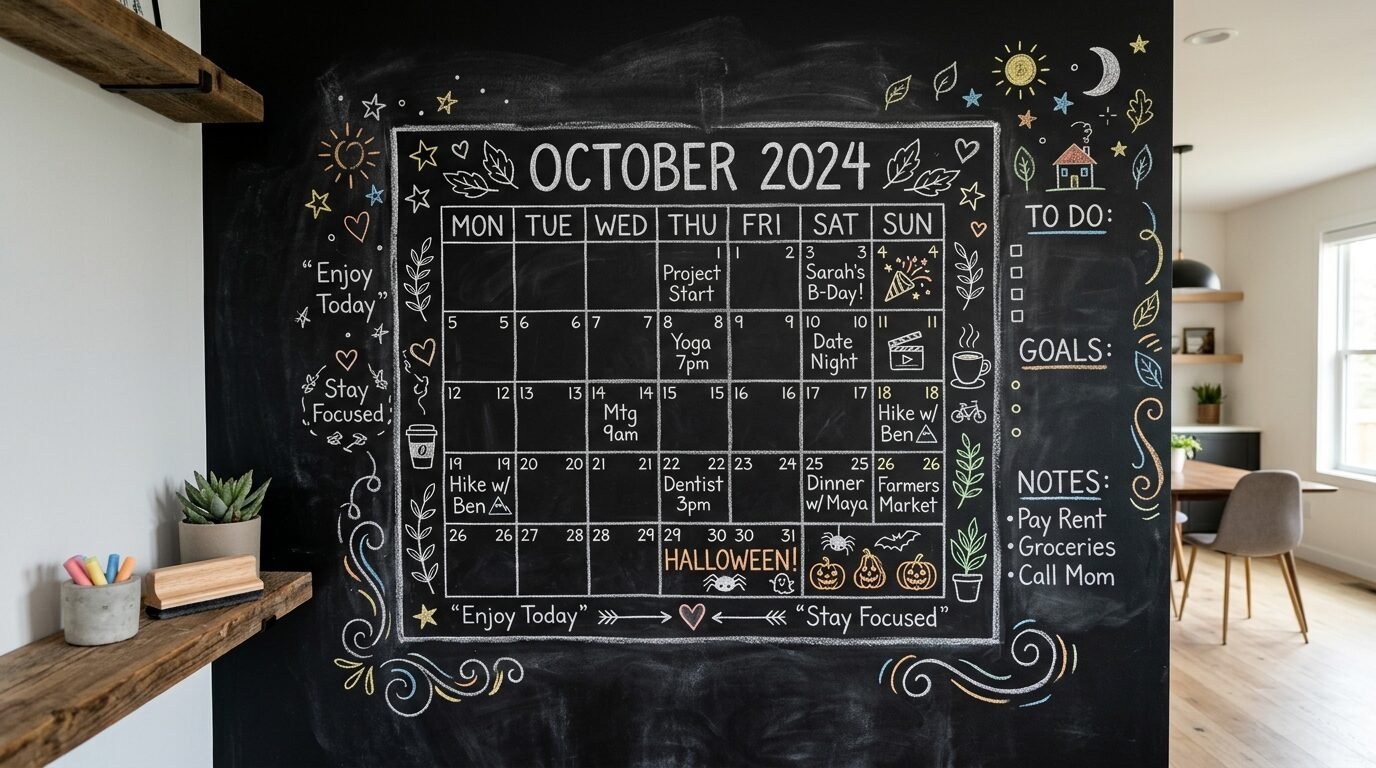 OCTOBER 2024
MON TUE WED THU FRI SAT SUN
1 1 2 3 3 4 4
Project Sarah's
Start B-Day!
5 5 6 6 7 7 8 8 9 9 10 10 11 11
Yoga Date
7pm Night
12 12 13 13 14 14 15 15 16 16 17 17 18 18
Mtg Hike w/
9am Ben
19 19 20 20 21 21 22 22 23 24 25 25 26 26
Hike w/ Dentist Dinner Farmers
Ben 3pm w/ Maya Market
26 26 27 28 28 29 29 30 30 31
HALLOWEEN!
"Enjoy Today" "Stay Focused"
"Enjoy
Today"
Stay
Focused
TO DO:
GOALS:
NOTES:
•Pay Rent
•Groceries
•Call Mom